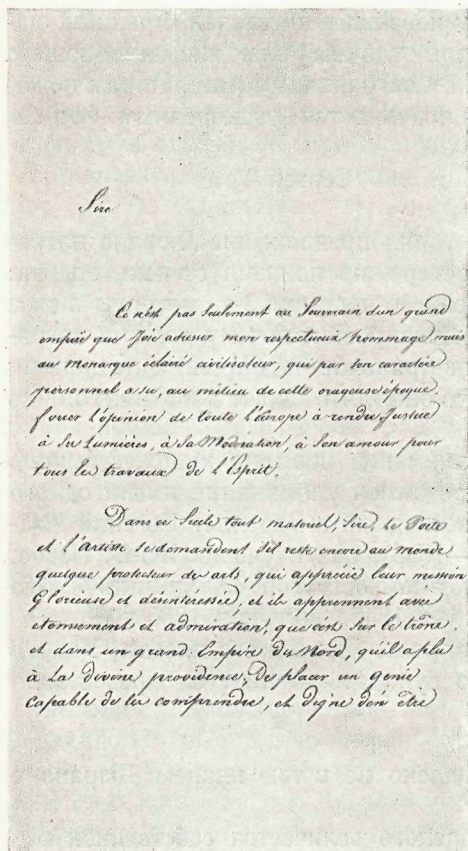 Sire
Ce n'ést pas seulement au Souverain d'un grand
empire que J'oïe adresser mon respectueux hommage, mais
au Monarque éclairé civilisateur, qui par son caractère
personnel a su, au milieu de cette orageuse époque,
forcer l'opinion de toute l'Europe à rendre Justice
à Ses Lumières, à Sa Modération, à Son amour pour
tous les travaux de l'Esprit.
Dans ce Siècle tout materiel, Sire, le Poète
et l'artiste se demandent s'il reste encore au monde
quelque protecteur des arts, qui apprécie leur mission
Glorieuse et désintéressée, et ils apprennent avec
etonnement et admiration, que c'ést sur le trône,
et dans un grand Empire du Nord, qu'il a plu
à la divine providence, De placer un genie
capable de les comprendre, et digne d'en être